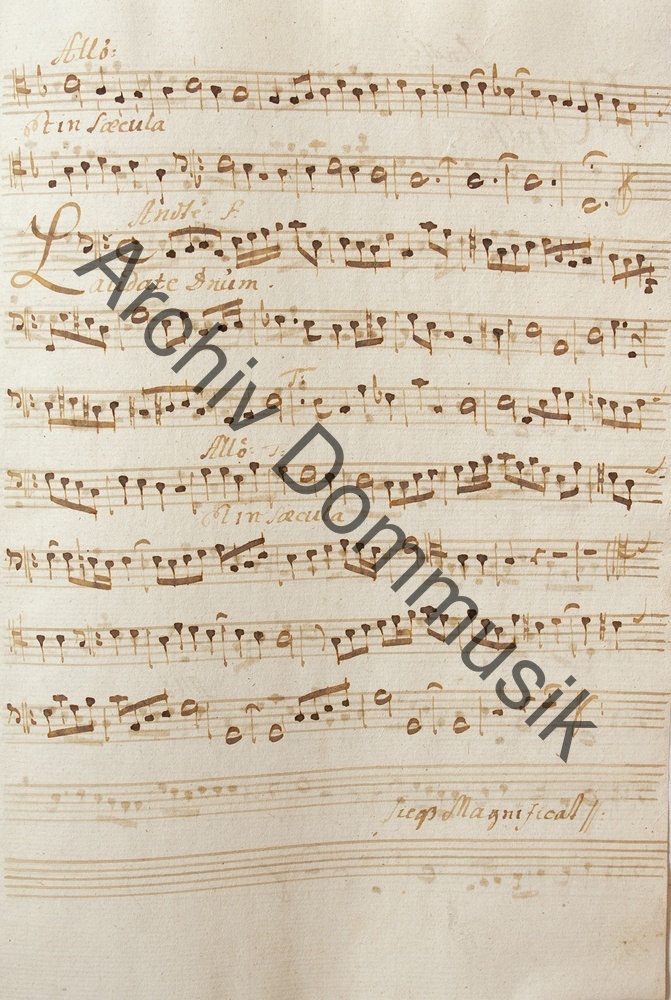 Allo:
Et in Sæcula
Andte f.
Laudate Dnum.
T.
Allo
Et in sæcula
seqs Magnificat //:
Archiv Dommusik